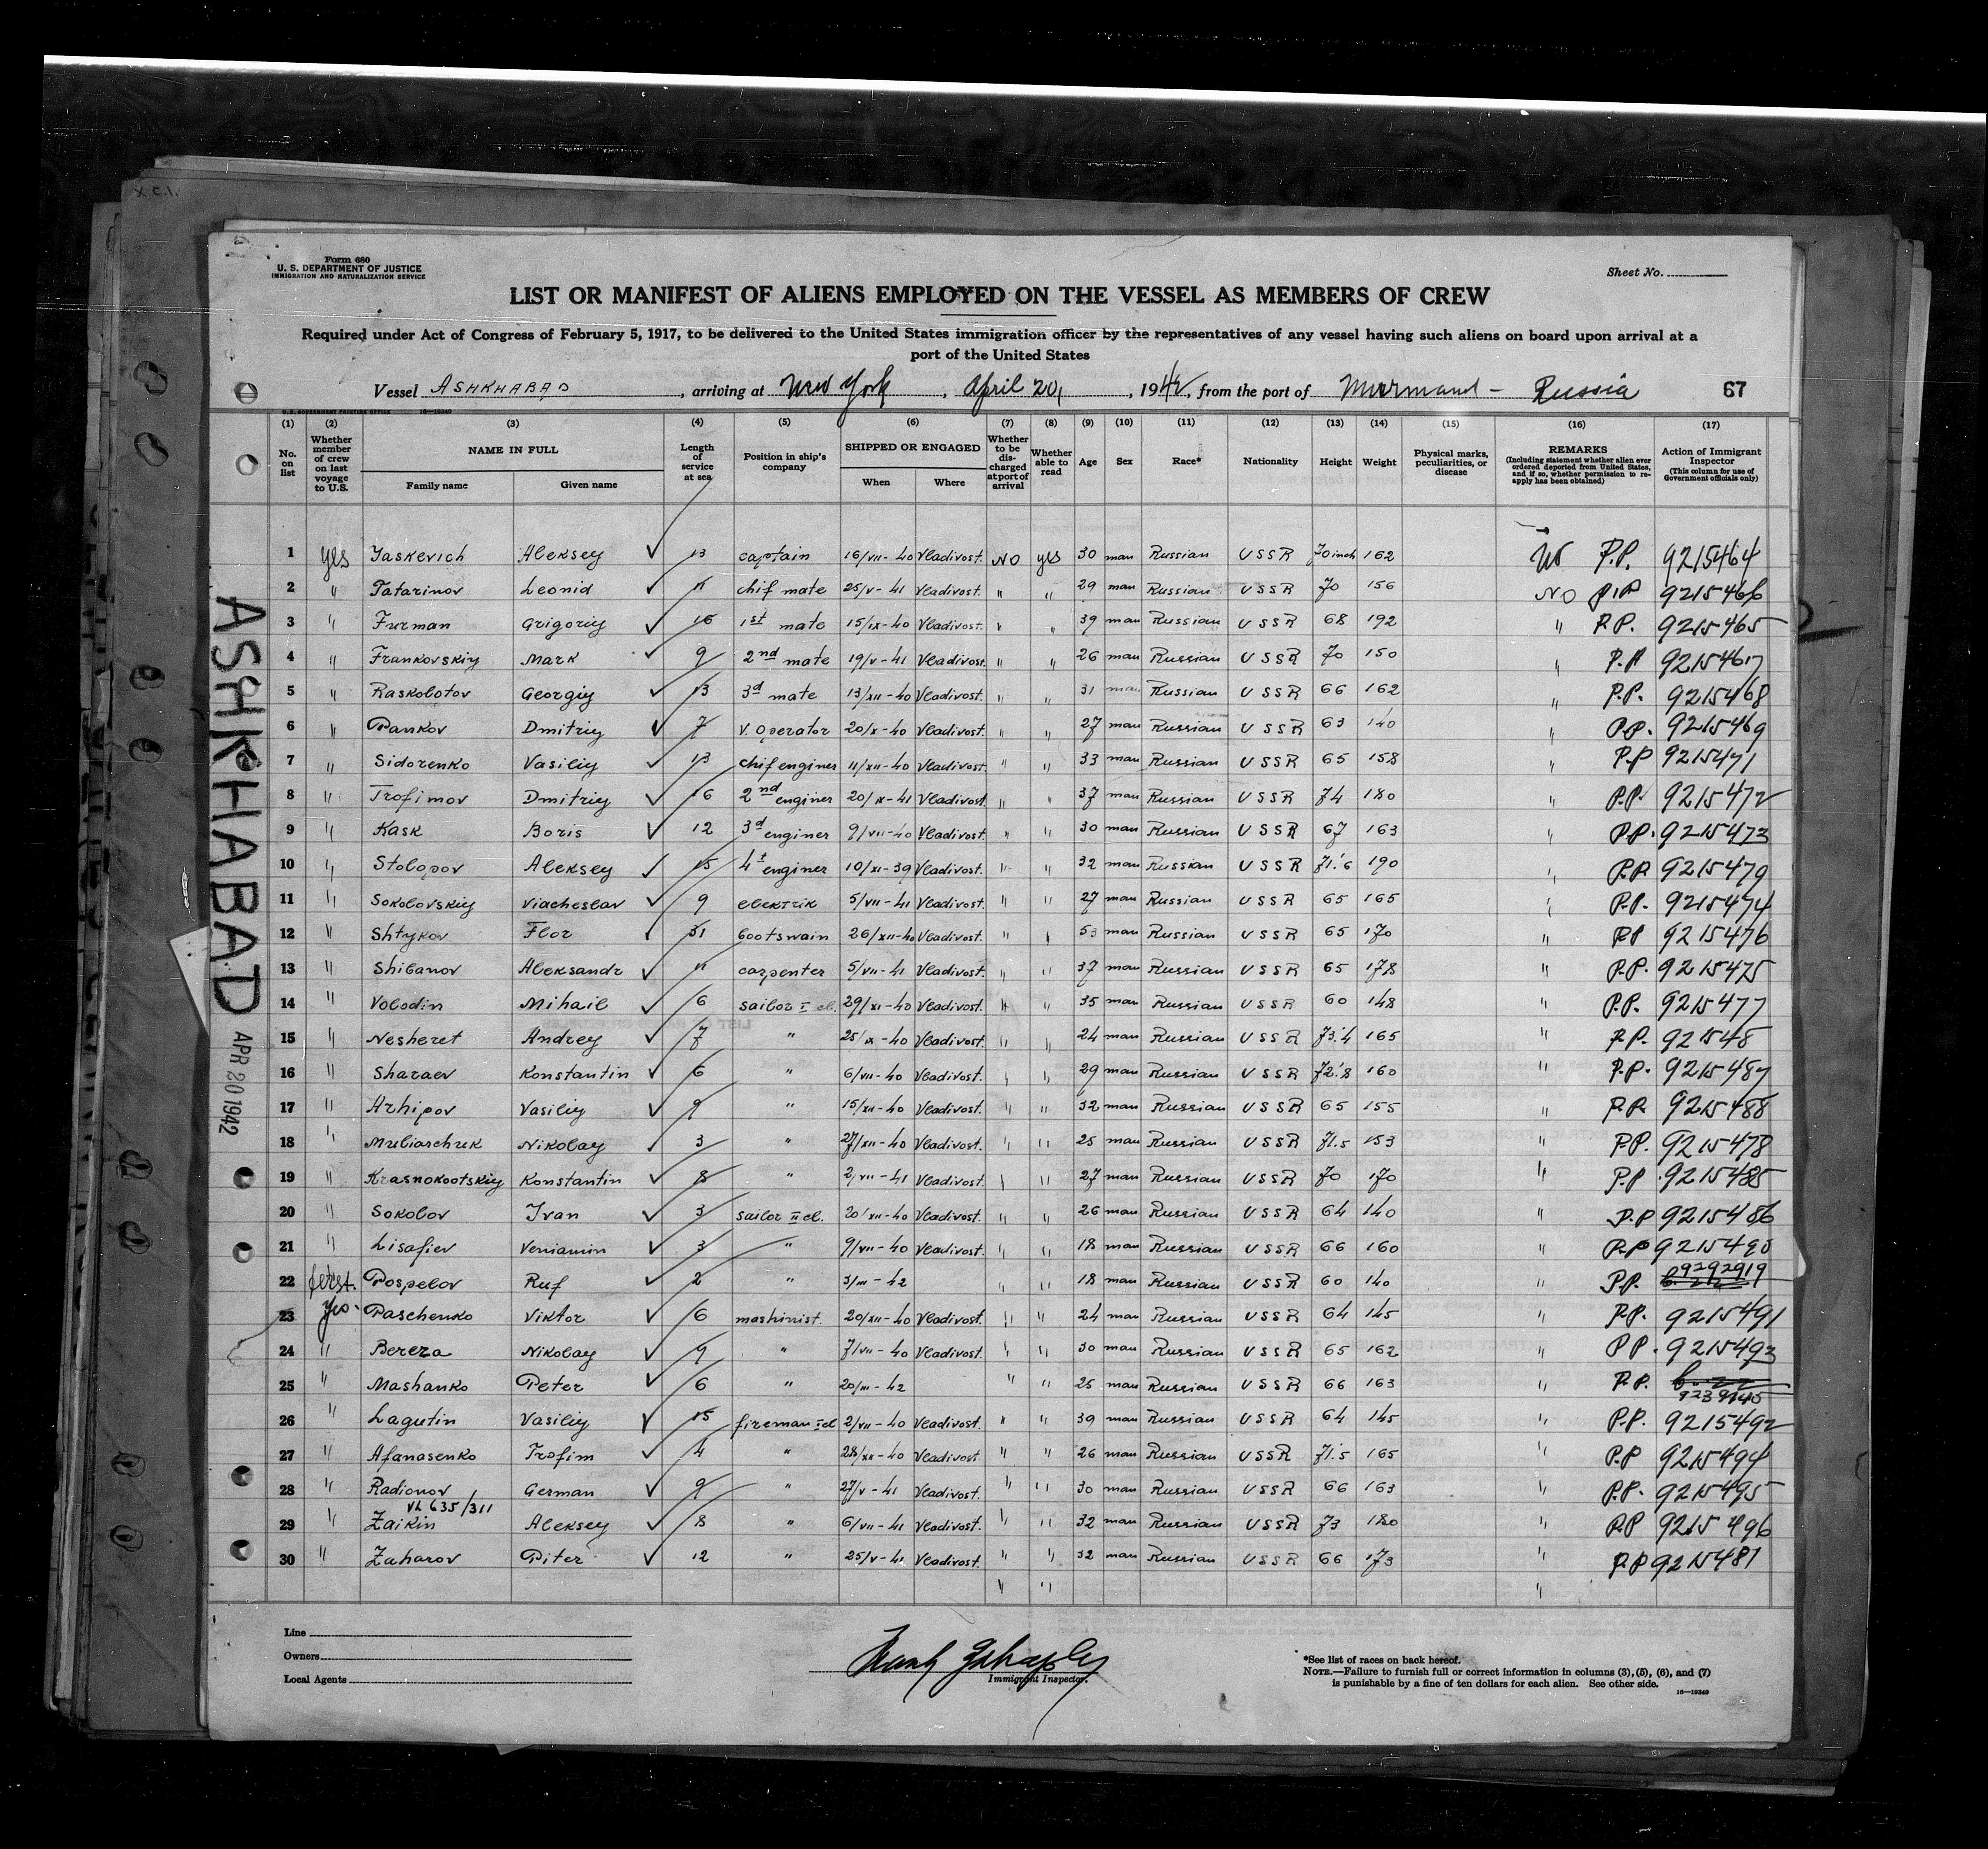 X.C.1.
Form 680
U. S. DEPARTMENT OF JUSTICE
IMMIGRATION AND NATURALIZATION SERVICE
Sheet No.
LIST OR MANIFEST OF ALIENS EMPLOYED ON THE VESSEL AS MEMBERS OF CREW
Required under Act of Congress of February 5, 1917, to be delivered to the United States immigration officer by the representatives of any vessel having such aliens on board upon arrival at a
port of the United States
Vessel ASHKHABAD, arriving at New York, April 20, 1942, from the port of Murmansk - Russia 67
U.S. GOVERNMENT PRINTING OFFICE 16—19340
(1) (2) (3) (4) (5) (6) (7) (8) (9) (10) (11) (12) (13) (14) (15) (16) (17)
No. on list
Whether member of crew on last voyage to U.S.
NAME IN FULL
Family name Given name
Length of service at sea
Position in ship's company
SHIPPED OR ENGAGED
When Where
Whether to be discharged at port of arrival
Whether able to read
Age Sex Race* Nationality Height Weight
Physical marks, peculiarities, or disease
REMARKS
(Including statement whether alien ever ordered deported from United States, and if so, whether permission to re-apply has been obtained)
Action of Immigrant Inspector
(This column for use of Government officials only)
1 yes Yaskevich Aleksey ✓ 13 captain 16/VII-40 Vladivost. No yes 30 man Russian USSR 70 inch 162 No P.P. 9215464
2 " Tatarinov Leonid ✓ 11 chif mate 25/V-41 Vladivost. " " 29 man Russian USSR 70 156 No P.P 9215466
3 " Furman Grigoriy ✓ 16 1st mate 15/IX-40 Vladivost. " " 39 man Russian USSR 68 192 " P.P. 9215465
4 " Frankovskiy Mark ✓ 9 2nd mate 19/V-41 Vladivost. " " 26 man Russian USSR 70 150 " P.P 9215467
5 " Raskolotov Georgiy ✓ 13 3d mate 13/XII-40 Vladivost. " " 31 man Russian USSR 66 162 " P.P. 9215468
6 " Pankov Dmitriy ✓ 7 V. operator 20/X-40 Vladivost. " " 27 man Russian USSR 63 140 " P.P. 9215469
7 " Sidorenko Vasiliy ✓ 13 chif enginer 11/XII-40 Vladivost. " " 33 man Russian USSR 65 158 " P.P 9215471
8 " Trofimov Dmitriy ✓ 16 2nd enginer 20/IX-41 Vladivost. " " 37 man Russian USSR 74 180 " P.P. 9215472
9 " Kask Boris ✓ 12 3d enginer 9/VII-40 Vladivost. " " 30 man Russian USSR 67 163 " P.P. 9215473
10 " Stolopov Aleksey ✓ 15 4t enginer 10/XI-39 Vladivost. " " 32 man Russian USSR 71.6 190 " P.P. 9215479
11 " Sokolovskiy Viacheslav ✓ 9 elektrik 5/VII-41 Vladivost. " " 27 man Russian USSR 65 165 " P.P. 9215474
12 " Shtykov Flor ✓ 31 bootswain 26/XII-40 Vladivost. " " 53 man Russian USSR 65 170 " P.P 9215476
13 " Shibanov Aleksandr ✓ 11 carpenter 5/VII-41 Vladivost. " " 37 man Russian USSR 65 178 " P.P. 9215475
14 " Volodin Mihail ✓ 6 sailor I cl. 29/XI-40 Vladivost. " " 35 man Russian USSR 60 148 " P.P. 9215477
15 " Nesheret Andrey ✓ 7 " 25/IX-40 Vladivost. " " 24 man Russian USSR 73.4 165 " P.P. 921548
16 " Sharaev Konstantin ✓ 6 " 6/VII-40 Vladivost. " " 29 man Russian USSR 72.8 160 " P.P. 9215487
17 " Arhipov Vasiliy ✓ 9 " 15/XII-40 Vladivost. " " 32 man Russian USSR 65 155 " P.P. 9215488
18 " Muliarchuk Nikolay ✓ 3 " 27/XII-40 Vladivost. " " 25 man Russian USSR 71.5 153 " P.P. 9215478
19 " Krasnokootskiy Konstantin ✓ 8 " 2/VII-41 Vladivost. " " 27 man Russian USSR 70 170 " P.P. 9215485
20 " Sokolov Ivan ✓ 3 sailor II cl. 20/XII-40 Vladivost. " " 26 man Russian USSR 64 140 " P.P 9215486
21 " Lisafiev Veniamin ✓ 3 " 9/VII-40 Vladivost. " " 18 man Russian USSR 66 160 " P.P 9215490
22 first. Pospelov Ruf ✓ 2 " 3/III-42 " " 18 man Russian USSR 60 140 " P.P. 9292919
23 yes. Paschenko Viktor ✓ 6 mashinist. 20/XII-40 Vladivost. " " 24 man Russian USSR 64 145 " P.P. 9215491
24 " Bereza Nikolay ✓ 9 " 7/VII-40 Vladivost. " " 30 man Russian USSR 65 162 " P.P. 9215493
25 " Mashanko Peter ✓ 6 " 20/III-42 " " 25 man Russian USSR 66 163 " P.P. 9239145
26 " Lagutin Vasiliy ✓ 15 fireman I cl 2/VII-40 Vladivost. " " 39 man Russian USSR 64 145 " P.P. 9215492
27 " Afanasenko Trofim ✓ 4 " 28/XII-40 Vladivost. " " 26 man Russian USSR 71.5 165 " P.P 9215494
28 " Radionov German ✓ 9 " 27/V-41 Vladivost. " " 30 man Russian USSR 66 163 " P.P. 9215495
VL 635/311
29 " Zaikin Aleksey ✓ 8 " 6/VII-41 Vladivost. " " 32 man Russian USSR 73 180 " P.P 9215496
30 " Zaharov Piter ✓ 12 " 25/V-41 Vladivost. " " 32 man Russian USSR 66 173 " P.P 9215481
" " "
ASHKHABAD APR 20 1942
Line
Owners
Local Agents
Immigrant Inspector.
*See list of races on back hereof.
NOTE.—Failure to furnish full or correct information in columns (3), (5), (6), and (7)
is punishable by a fine of ten dollars for each alien. See other side.
16—19340